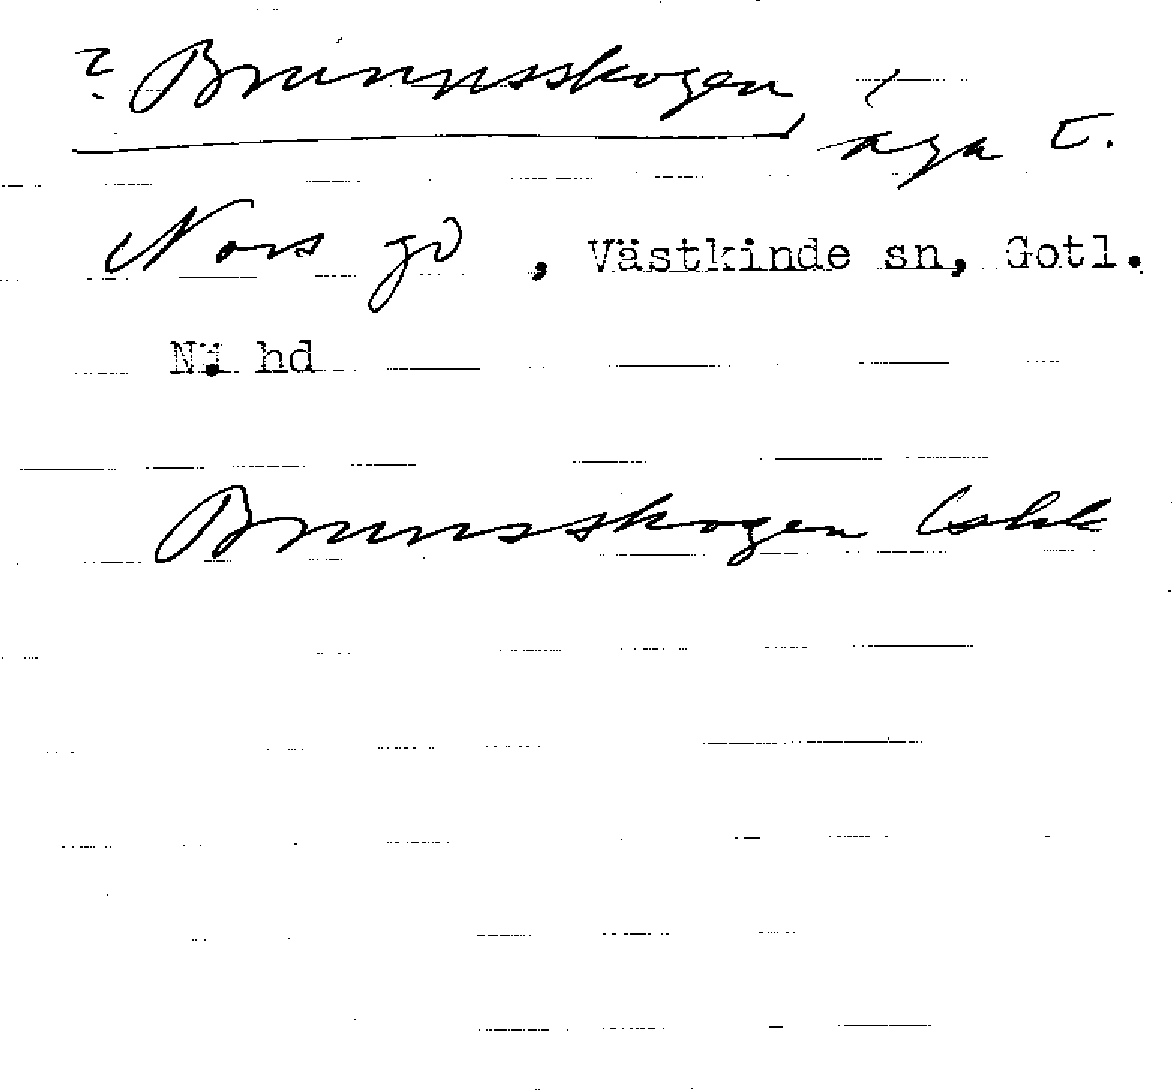 ? Brunnsskogen, +
Nors gd, Västkinde sn, Gotl.
N. hd
Brunsskogen